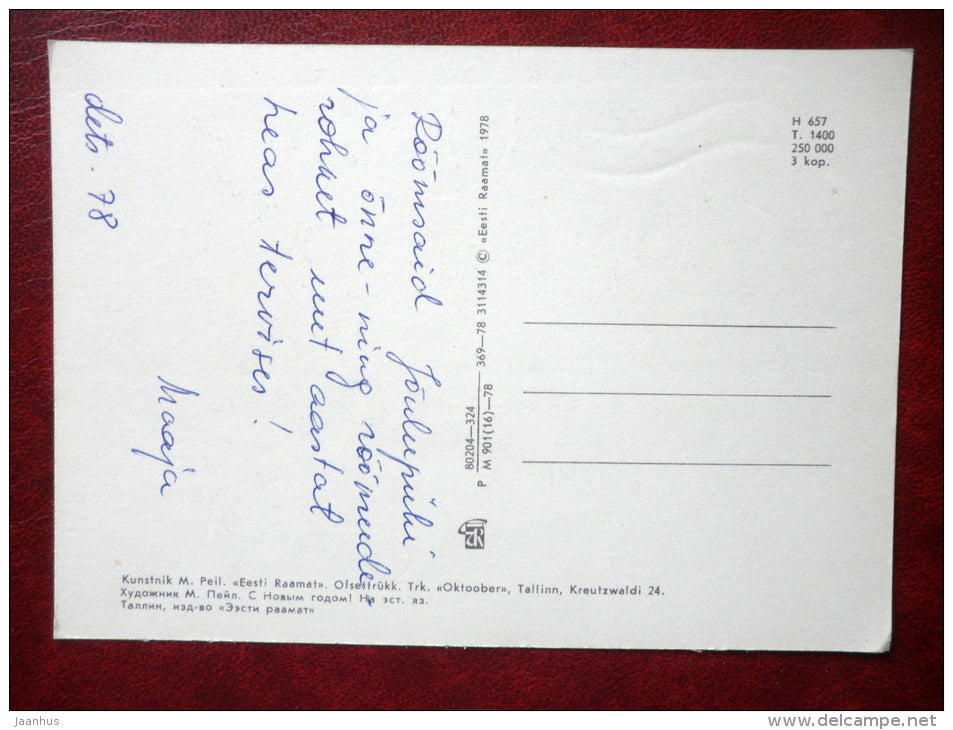 Rõõmsaid Jõulupühi
ja õnne- ning rõõmude-
rohket uut aastat
heas tervises!
Maaja
dets. 78
P 80204—324
M 901(16)—78 369—78 3114314 © «Eesti Raamat» 1978
H 657
T. 1400
250 000
3 kop.
Kunstnik M. Peil. «Eesti Raamat». Ofsettrükk. Trk. «Oktoober», Tallinn, Kreutzwaldi 24.
Художник М. Пейл. С Новым годом! На эст. яз.
Таллин, изд-во «Ээсти раамат»
jaanhus
www.delcampe.net